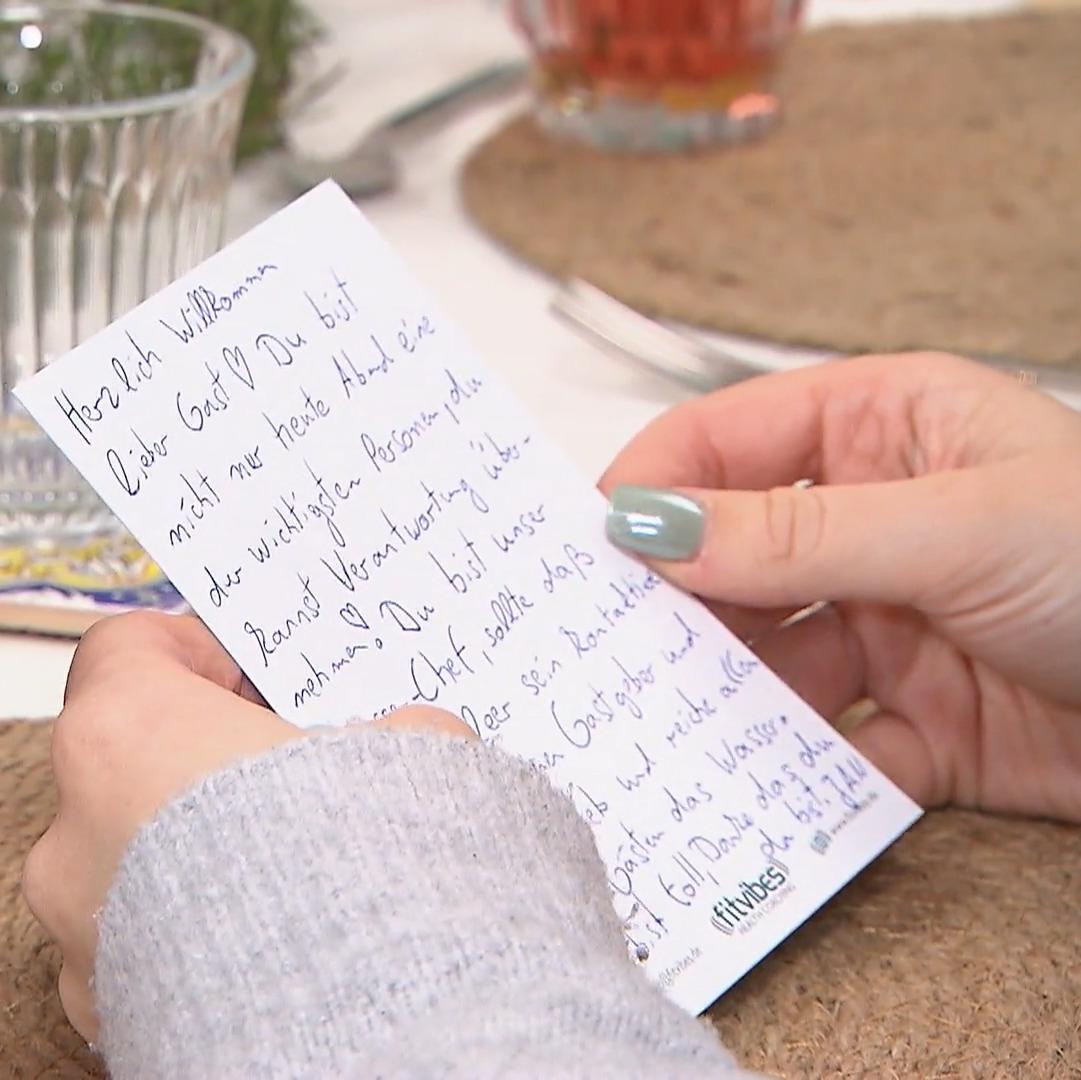 Herzlich Willkommen
lieber Gast ♡ Du bist
nicht nur heute Abend eine
der wichtigsten Personen, du
kannst Verantwortung über-
nehmen ♡. Du bist unser
-Chef, sollte daß
leer sein kontaktier
Gastgeber und
und reiche allen
Gästen das Wasser.
bist toll, Danke das du
du bist. JAN
((fitvibes))
HEALTH COACHING
@fitvibes.de